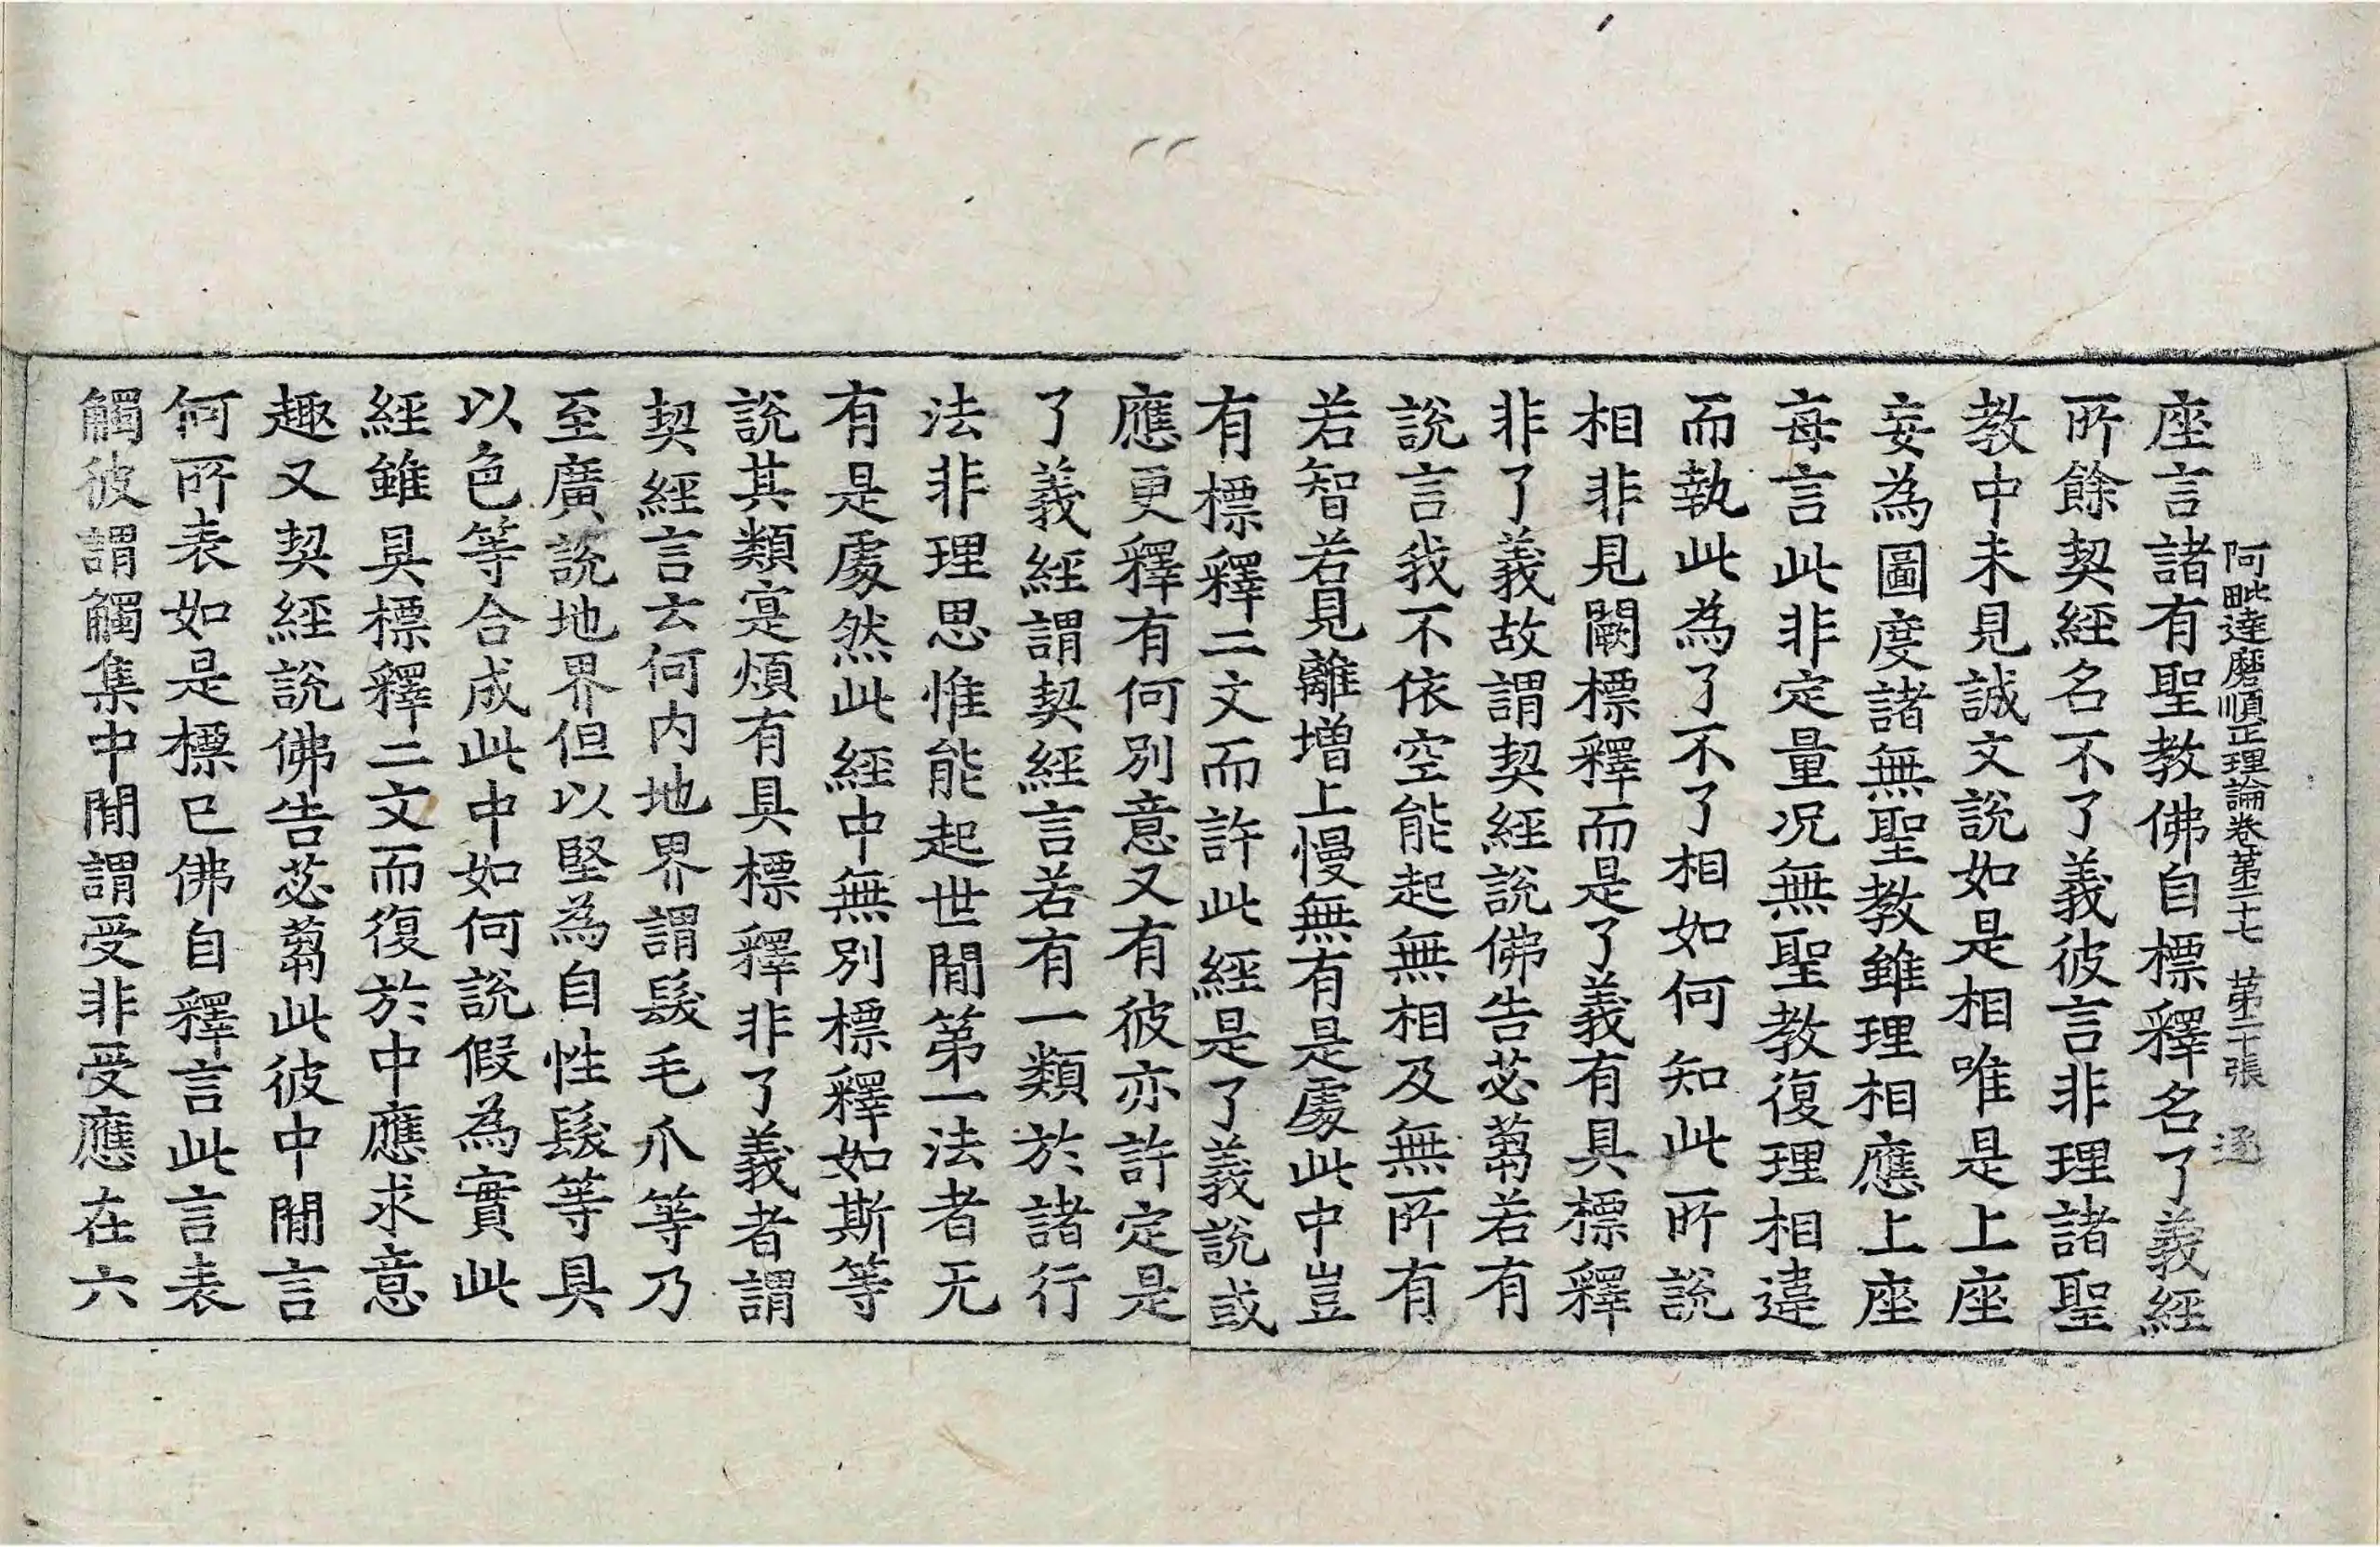 阿毗達磨順正理論卷第二十七 第二十張 逐
座言諸有聖教佛自標釋名了義經
所餘契經名不了義彼言非理諸聖
教中未見誠文說如是相唯是上座
妄為圖度諸無聖教雖理相應上座
每言此非定量況無聖教復理相違
而執此為了不了相如何知此所說
相非見闕標釋而是了義有具標釋
非了義故謂契經說佛告苾蒭若有
說言我不依空能起無相及無所有
若智若見離增上慢無有是處此中豈
有標釋二文而許此經是了義說或
應更釋有何別意又有彼亦許定是
了義經謂契經言若有一類於諸行
法非理思惟能起世閒第一法者无
有是處然此經中無別標釋如斯等
說其類寔煩有具標釋非了義者謂
契經言云何內地界謂髮毛爪等乃
至廣說地界但以堅為自性髮等具
以色等合成此中如何說假為實此
經雖具標釋二文而復於中應求意
趣又契經說佛告苾蒭此彼中閒言
何所表如是標已佛自釋言此言表
觸彼謂觸集中閒謂受非受應在六